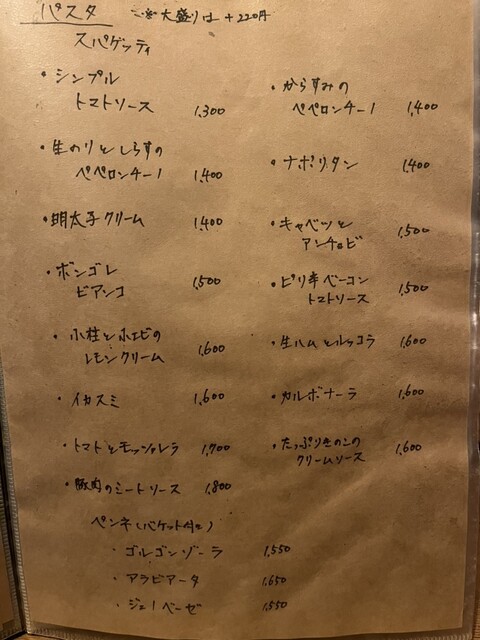 パスタ ※大盛りは +220円
スパゲッティ
・シンプル
トマトソース 1,300
・生のりとしらすの
ペペロンチーノ 1,400
・明太子クリーム 1,400
・ボンゴレ
ビアンコ 1,500
・小柱と小エビの
レモンクリーム 1,600
・イカスミ 1,600
・トマトとモッツァレラ 1,700
・豚肉のミートソース 1,800
・からすみの
ペペロンチーノ 1,400
・ナポリタン 1,400
・キャベツと
アンチョビ 1,500
・ピリ辛ベーコン
トマトソース 1,500
・生ハムとルッコラ 1,600
・カルボナーラ 1,600
・たっぷりきのこの
クリームソース 1,600
ペンネ(バケット付き)
・ゴルゴンゾーラ 1,550
・アラビアータ 1,650
・ジェノベーゼ 1,550